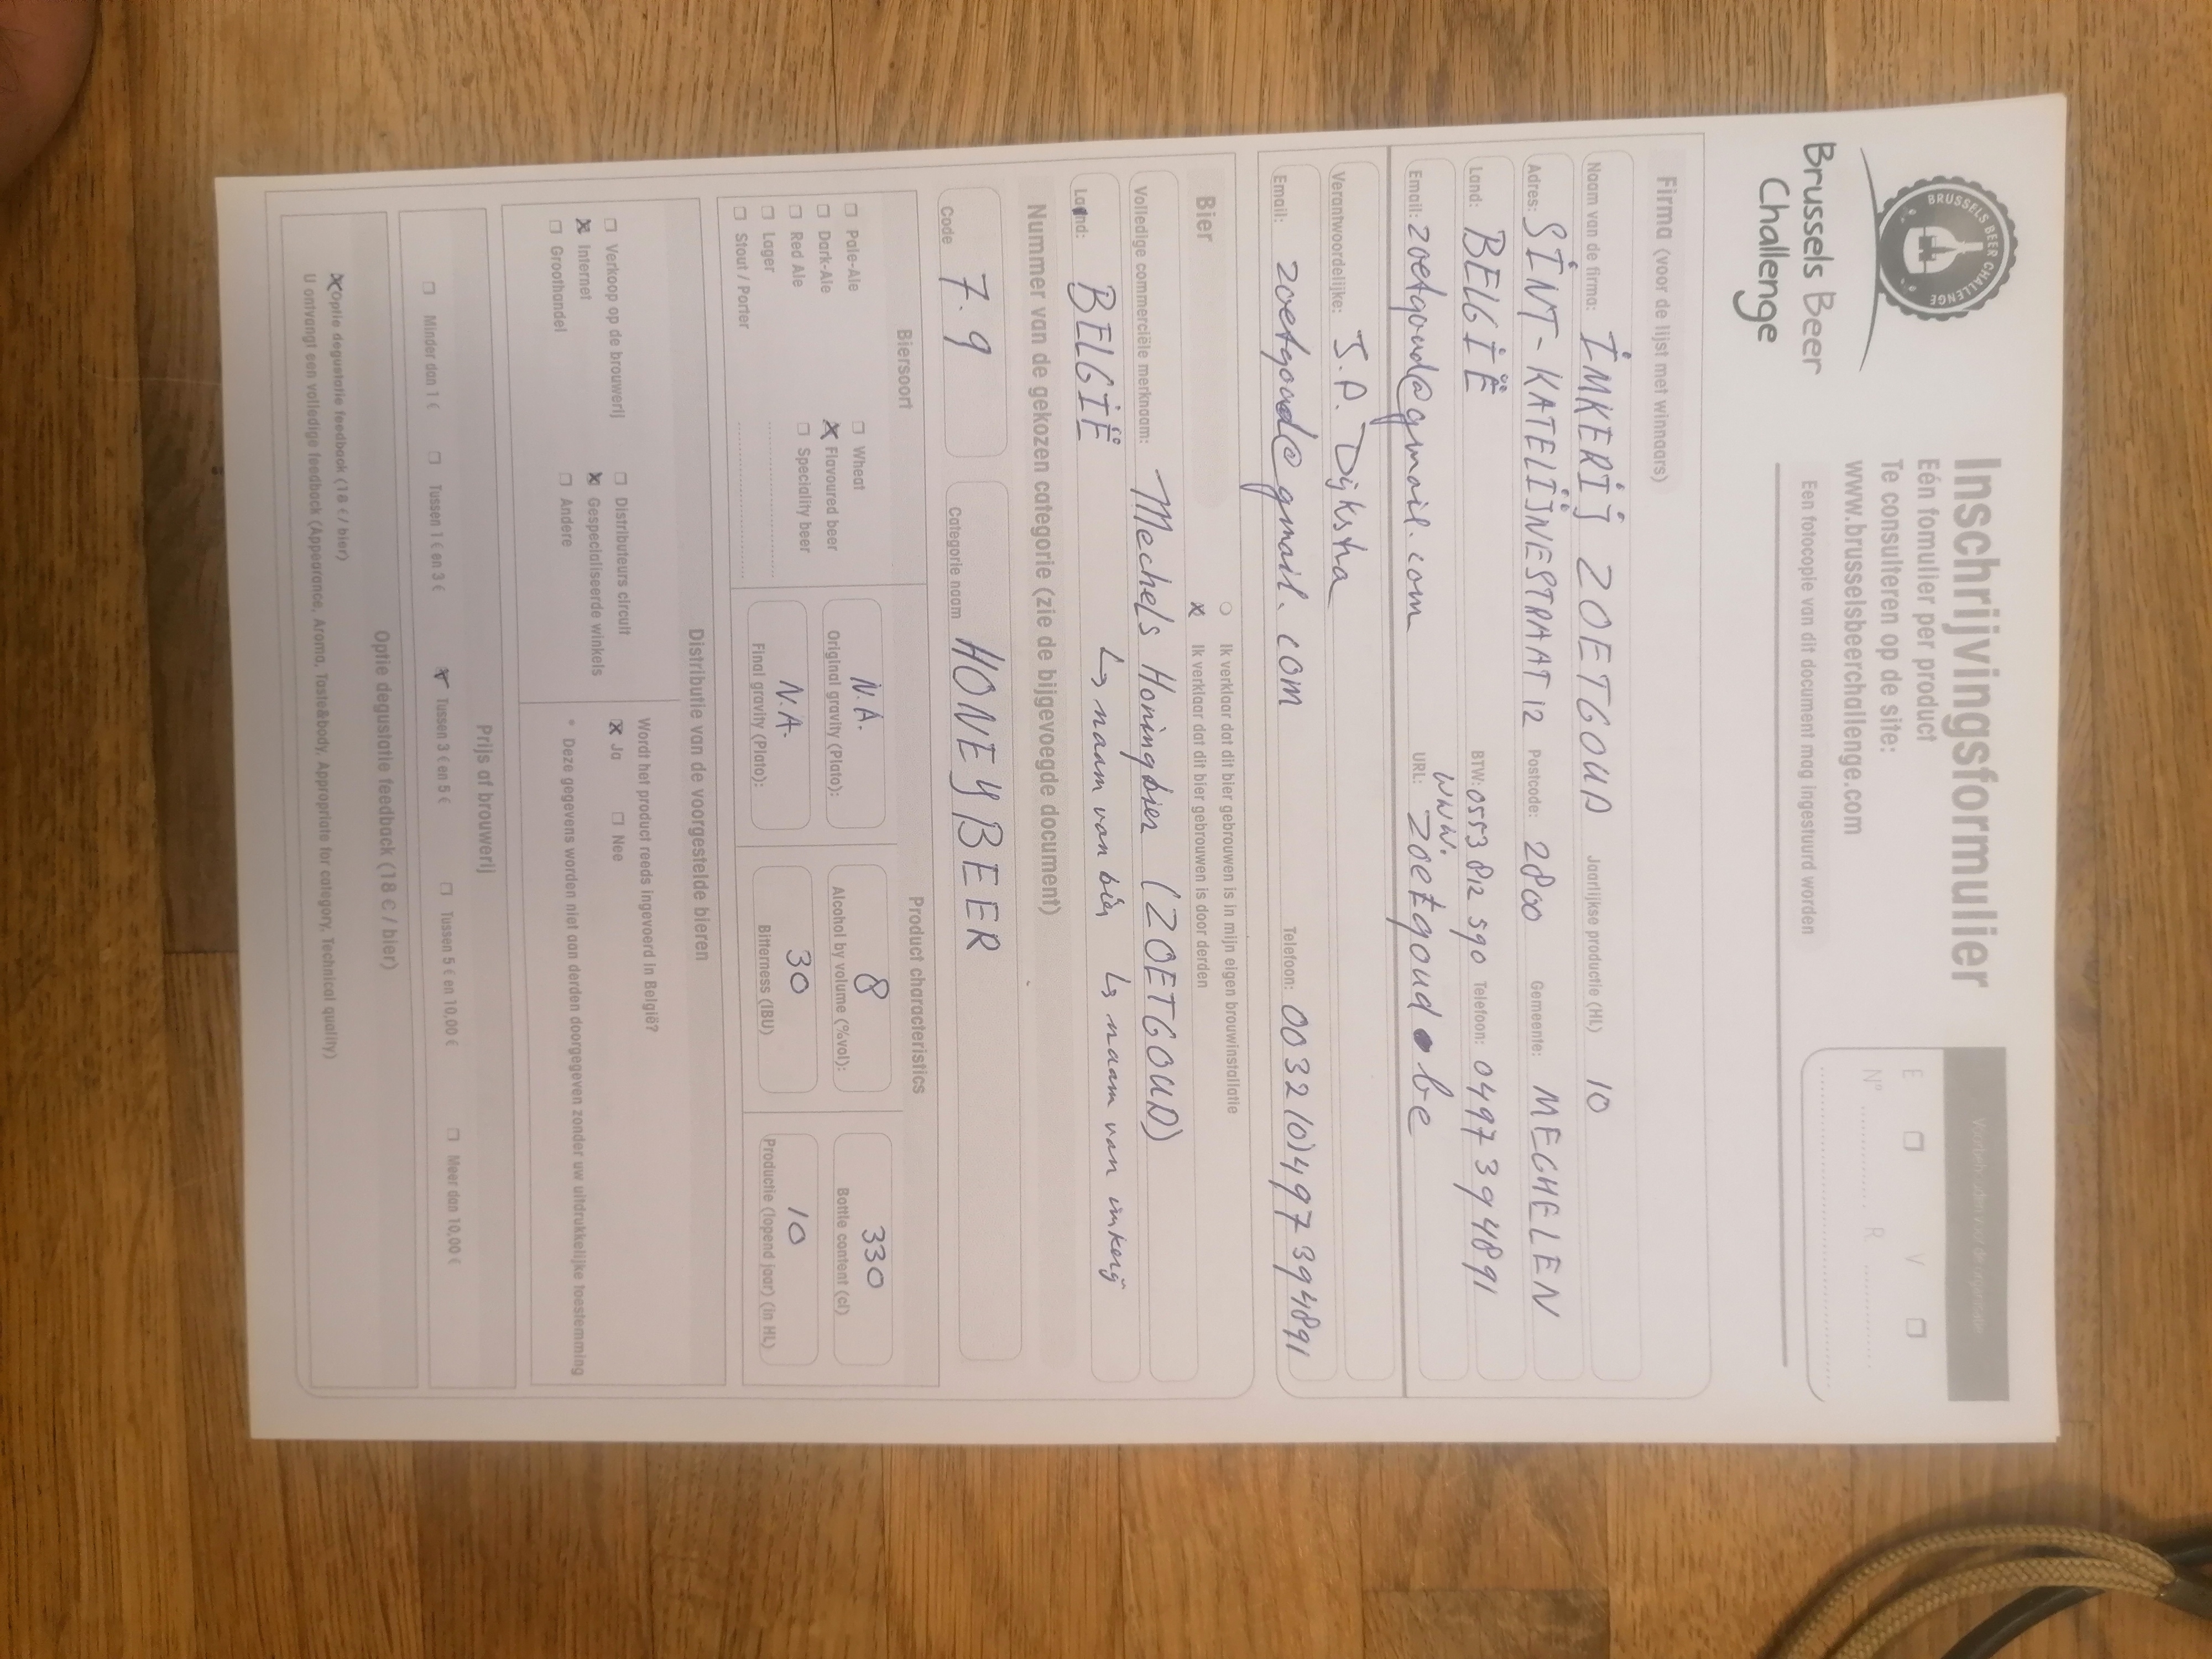 BRUSSELS BEER CHALLENGE
Brussels Beer
Challenge
Inschrijvingsformulier
Eén fomulier per product
Te consulteren op de site:
www.brusselsbeerchallenge.com
Een fotocopie van dit document mag ingestuurd worden
E ☐ V ☐
N° .............. R ..............
Firma (voor de lijst met winnaars)
Naam van de firma: IMKERIJ ZOETGOUD Jaarlijkse productie (HL) 10
Adres: SINT-KATELIJNESTRAAT 12 Postcode: 2800 Gemeente: MECHELEN
Land: BELGIË BTW: 0553 812 590 Telefoon: 0497 394891
Email: zoetgoud@gmail.com URL: www.zoetgoud.be
Verantwoordelijke: J.A. Dijkstra
Email: zoetgoud@gmail.com Telefoon: 0032(0)497394891
Bier
○ Ik verklaar dat dit bier gebrouwen is in mijn eigen brouwinstallatie
x Ik verklaar dat dit bier gebrouwen is door derden
Volledige commerciële merknaam: Mechels Honingbier (ZOETGOUD)
↳ naam van bier ↳ naam van imkerij
Land: BELGIË
Nummer van de gekozen categorie (zie de bijgevoegde document)
Code 7.9 Categorie naam HONEYBEER
Biersoort Product characteristics
☐ Pale-Ale ☐ Wheat
☐ Dark-Ale x Flavoured beer
☐ Red Ale ☐ Speciality beer
☐ Lager
☐ Stout / Porter
N.A. 8 330
Original gravity (Plato): Alcohol by volume (%vol): Bottle content (cl)
N.A. 30 10
Final gravity (Plato): Bitterness (IBU) Productie (lopend jaar) (in HL)
Distributie van de voorgestelde bieren
☐ Verkoop op de brouwerij ☐ Distributeurs circuit
x Internet x Gespecialiseerde winkels
☐ Groothandel ☐ Andere
Wordt het product reeds ingevoerd in België?
x Ja ☐ Nee
* Deze gegevens worden niet aan derden doorgegeven zonder uw uitdrukkelijke toestemming
Prijs af brouwerij
☐ Minder dan 1 € ☐ Tussen 1 € en 3 € x Tussen 3 € en 5 € ☐ Tussen 5 € en 10,00 € ☐ Meer dan 10,00 €
Optie degustatie feedback (18 € / bier)
x Optie degustatie feedback (18 € / bier)
U ontvangt een volledige feedback (Appearance, Aroma, Taste&body, Appropriate for category, Technical quality)